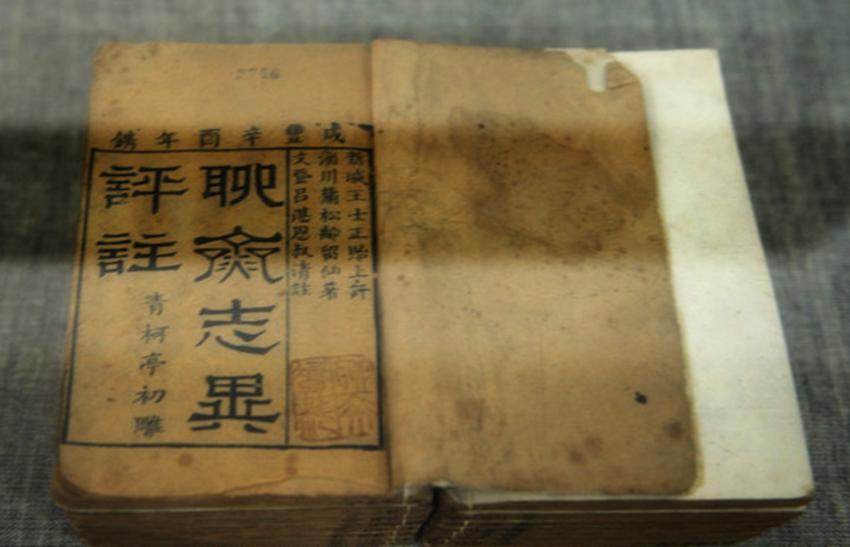 咸豐辛酉年鐫
新城王士正貽上評
淄川蒲松齡留仙著
文登呂湛恩叔清註
聊齋志異
評註
青柯亭初雕